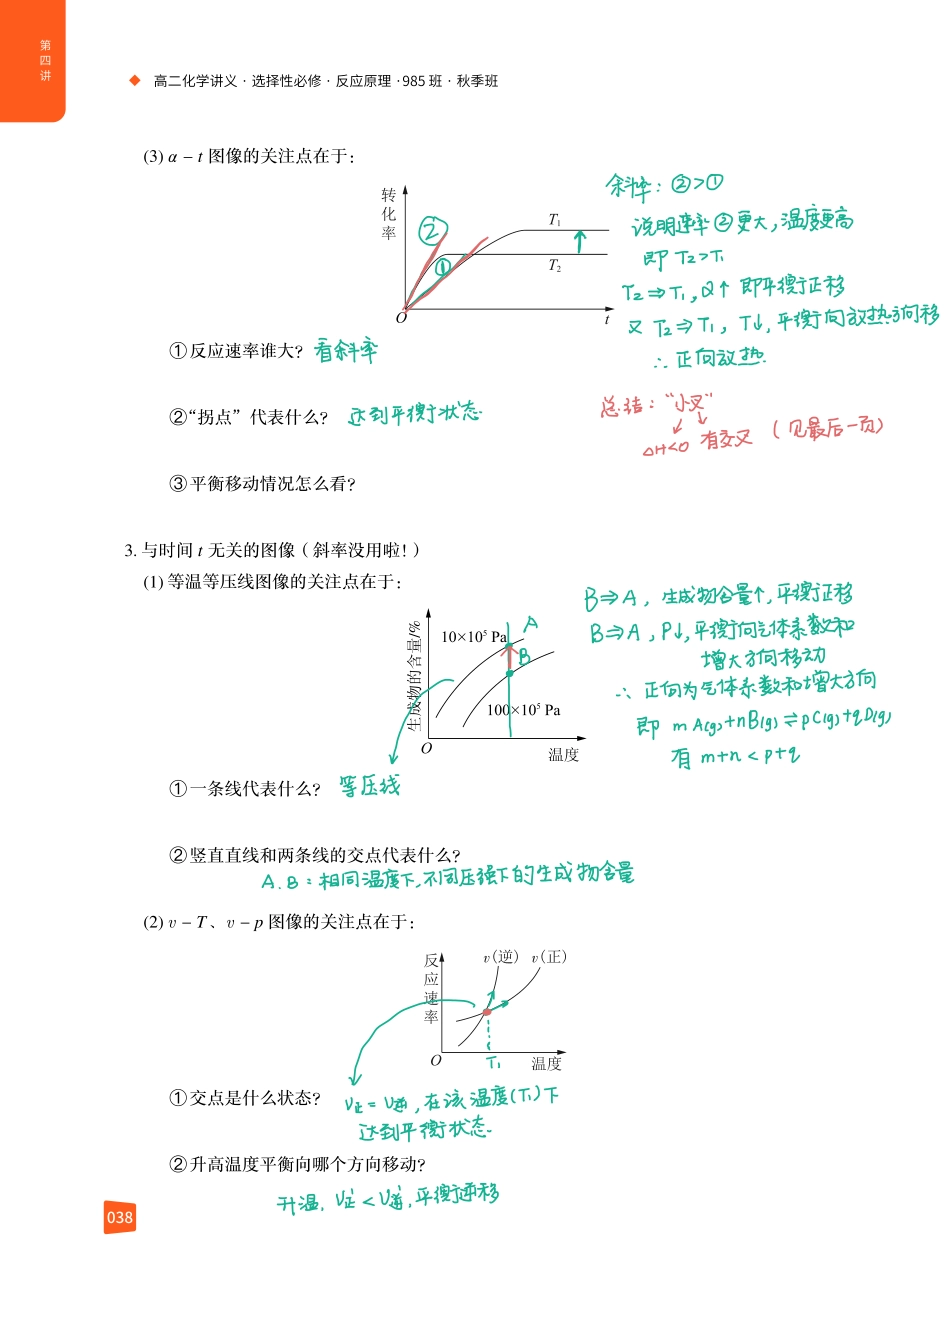 第四讲
高二化学讲义·选择性必修·反应原理·985班·秋季班
(3) α – t 图像的关注点在于:
转化率
②
①
T₁
T₂
O
t
斜率: ②>①
说明速率②更大,温度更高
即 T₂>T₁
T₂⇒T₁,α↑ 即平衡正移
又 T₂⇒T₁, T↓,平衡向放热方向移
∴正向放热.
①反应速率谁大? 看斜率
②“拐点”代表什么? 达到平衡状态
总结: “小叉”
△H<0 有交叉 (见最后一页)
③平衡移动情况怎么看?
3. 与时间 t 无关的图像(斜率没用啦!)
(1) 等温等压线图像的关注点在于:
生成物的含量/%
10×10⁵ Pa
A
B
100×10⁵ Pa
O
温度
B⇒A, 生成物含量↑,平衡正移
B⇒A, P↓,平衡向气体系数和
增大方向移动
∴ 正向为气体系数和增大方向
即 mA(g)+nB(g)⇌pC(g)+qD(g)
有 m+n<p+q
①一条线代表什么? 等压线
②竖直直线和两条线的交点代表什么?
A.B:相同温度下,不同压强下的生成物含量
(2) v – T、v – p 图像的关注点在于:
反应速率
v(逆)
v(正)
O
T₁
温度
①交点是什么状态? V正=V逆,在该温度(T₁)下
达到平衡状态.
②升高温度平衡向哪个方向移动?
升温, V正'<V逆',平衡逆移
038